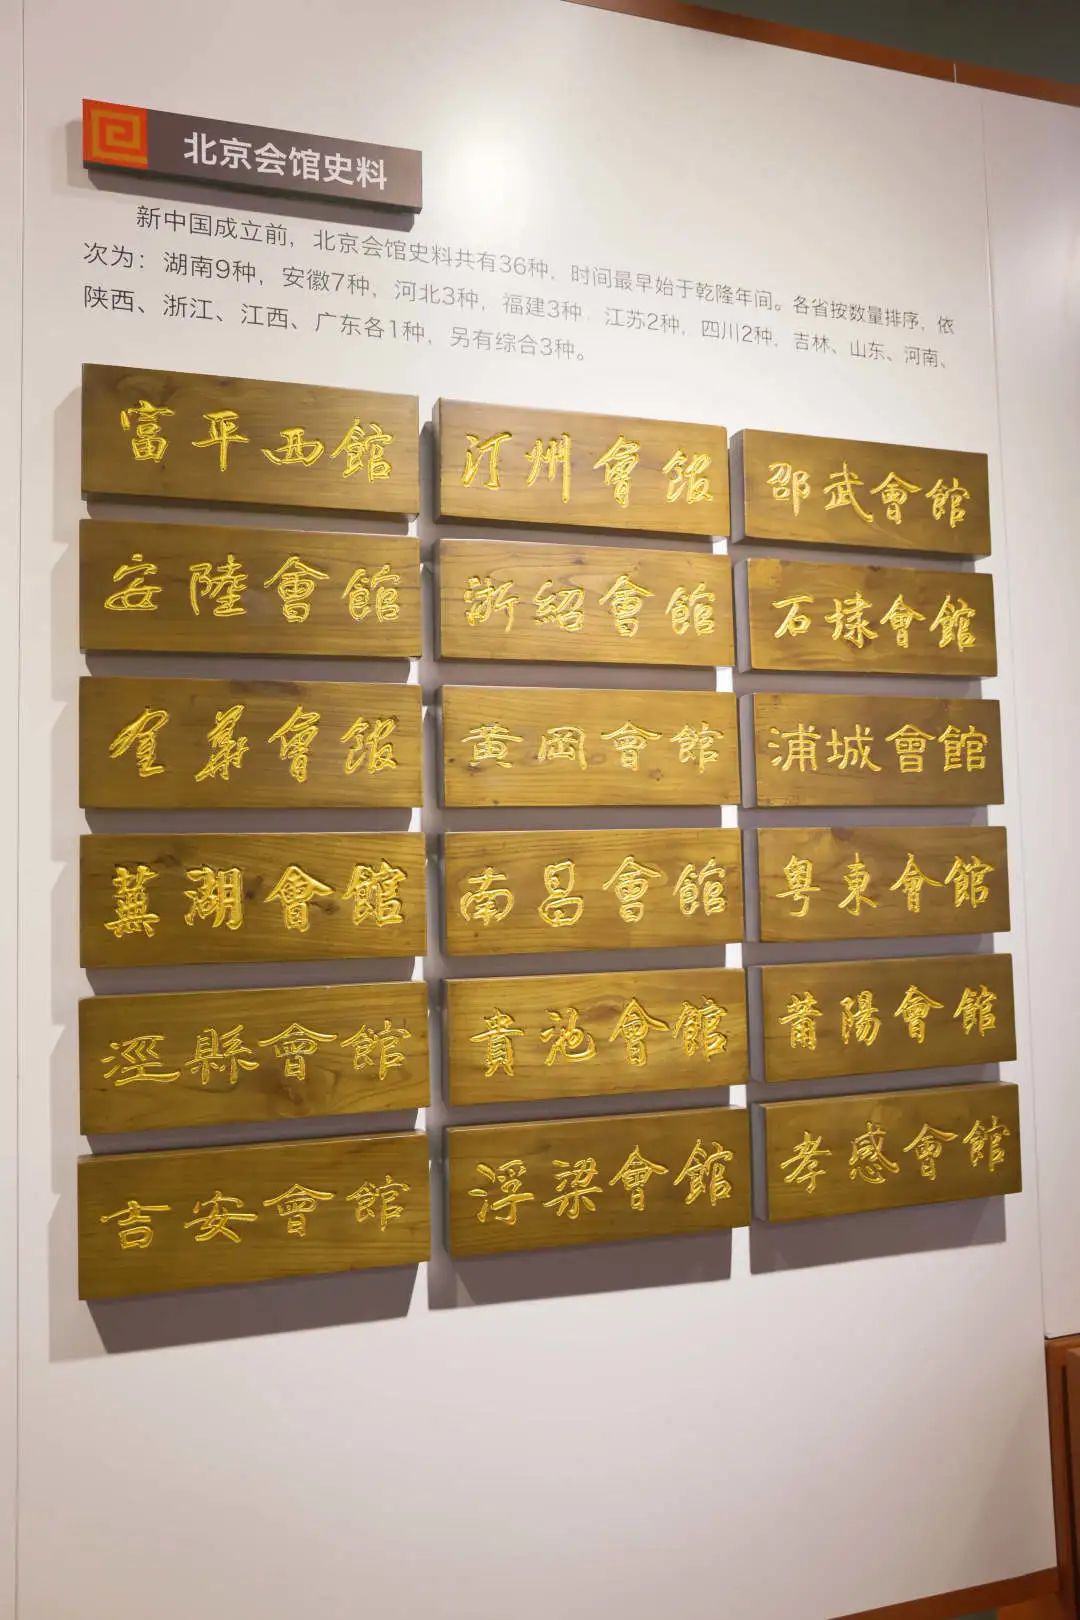 北京会馆史料
新中国成立前，北京会馆史料共有36种，时间最早始于乾隆年间。各省按数量排序，依
次为：湖南9种，安徽7种，河北3种，福建3种，江苏2种，四川2种，吉林、山东、河南、
陕西、浙江、江西、广东各1种，另有综合3种。
富平西館
汀州會館
邵武會館
安陸會館
浙紹會館
石埭會館
金華會館
黃岡會館
浦城會館
蕪湖會館
南昌會館
粵東會館
涇縣會館
貴池會館
莆陽會館
吉安會館
浮梁會館
孝感會館